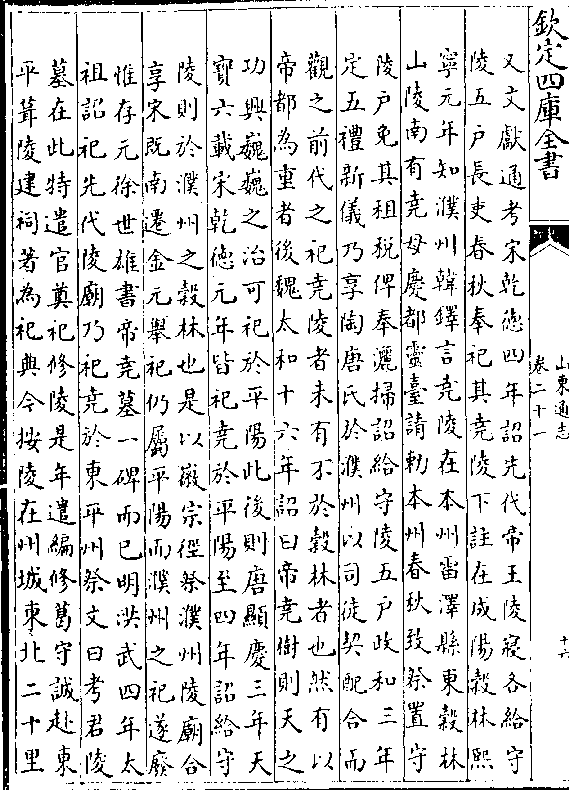 欽定四庫全書
山東通志
卷二十一
十六
又文獻通考宋乾徳四年詔先代帝王陵寢各給守
陵五戸長吏春秋奉祀其堯陵下註在成陽榖林熙
寧元年知濮州韓鐸言堯陵在本州雷澤縣東榖林
山陵南有堯母慶都靈臺請勅本州春秋致祭置守
陵戸免其租税俾奉灑掃詔給守陵五戸政和三年
定五禮新儀乃享陶唐氏於濮州以司徒契配合而
觀之前代之祀堯陵者未有不於榖林者也然有以
帝都為重者後魏太和十六年詔曰帝堯樹則天之
功興巍巍之治可祀於平陽此後則唐顯慶三年天
寳六載宋乾徳元年皆祀堯於平陽至四年詔給守
陵則於濮州之榖林也是以徽宗從祭濮州陵廟合
享宋既南遷金元舉祀仍屬平陽而濮州之祀遂廢
惟存元徐世雄書帝堯墓一碑而已明洪武四年太
祖詔祀先代陵廟乃祀堯於東平州祭文曰考君陵
墓在此特遣官奠祀修陵是年遣編修葛守誠赴東
平葺陵建祠著為祀典今按陵在州城東北二十里